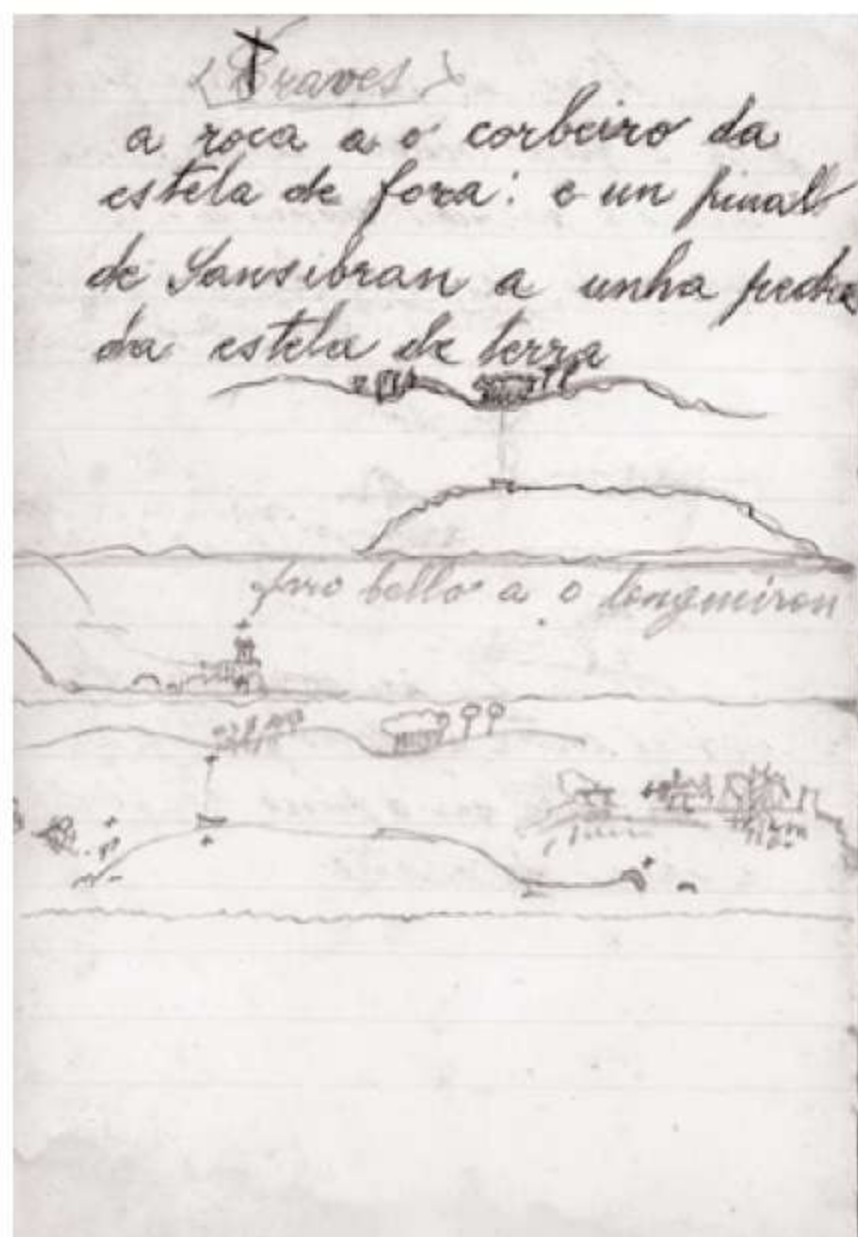 <Traves>
a roca a o corbeiro da
estela de fora: e un pinal
de Sansibran a unha pedra
da estela de terra
faro bello a o longueiron